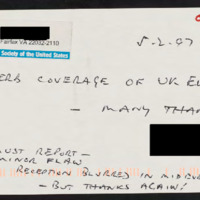 Fairfax VA 22032-2110
Society of the United States
5-2-97
COVERAGE OF UK
MANY
REPORT -
MINOR FLAW
RECEPTION BLURRED IN
- BUT THANKS AGAIN!